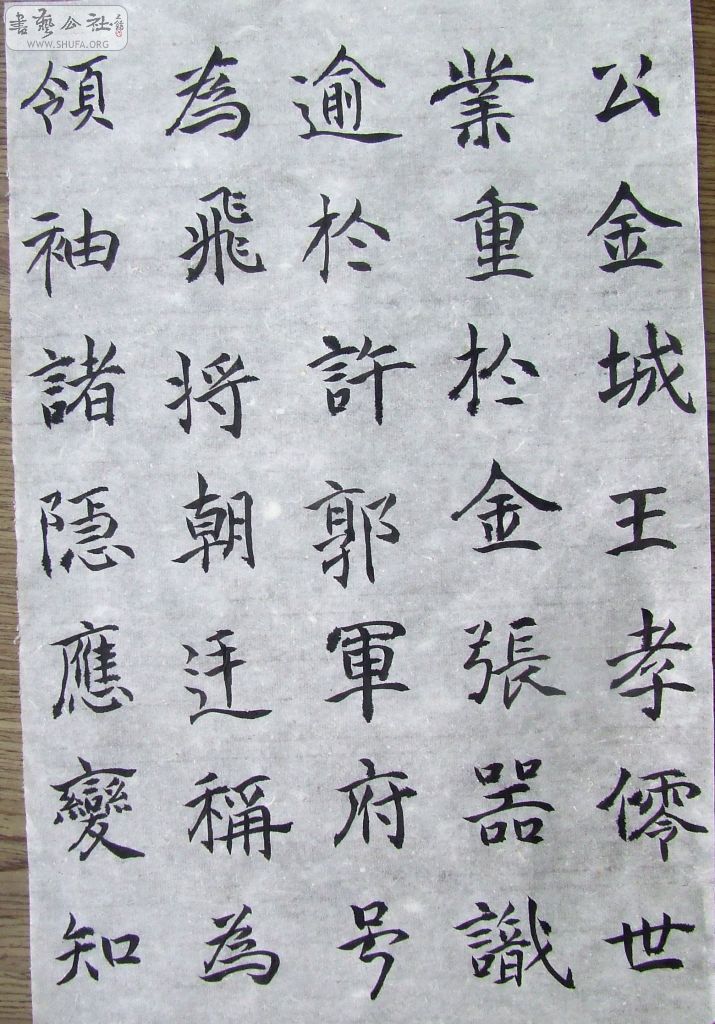 書藝公社
WWW.SHUFA.ORG
公金城王孝世
業重於金張器識
逾於許郭軍府号
為飛将朝廷稱為
領袖諸隱應變知